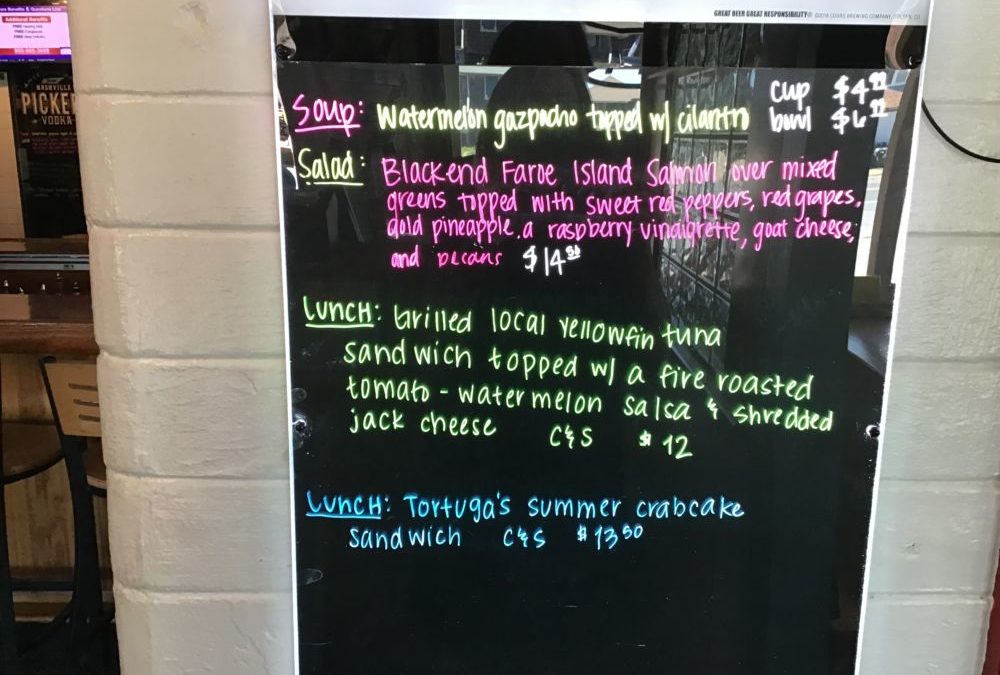 Additional Benefits
NASHVILLE
PICKER
VODKA
GREAT BEER GREAT RESPONSIBILITY®
Soup: Watermelon gazpacho topped w/ cilantro cup $4.99
bowl $6
Salad: Blackend Faroe Island Salmon over mixed
greens topped with sweet red peppers, red grapes,
gold pineapple, a raspberry vinaigrette, goat cheese,
and pecans $14.50
LUNCH: Grilled local yellowfin tuna
sandwich topped w/ a fire roasted
tomato - watermelon salsa & shredded
jack cheese C&S $12
LUNCH: Tortuga's summer crabcake
sandwich C&S $13.50